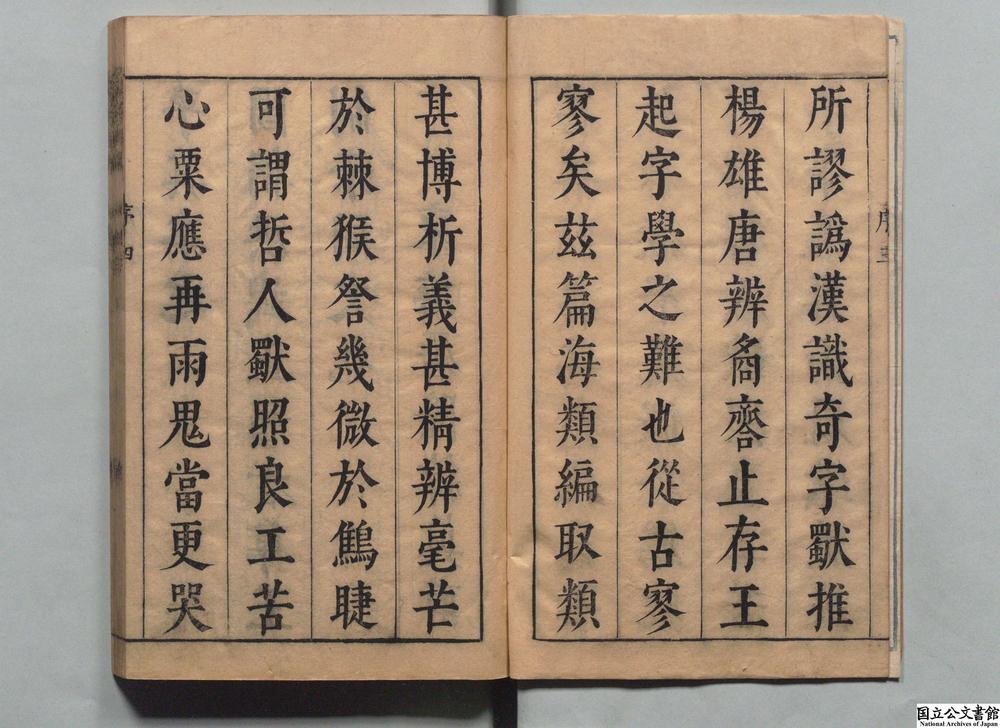 所謬譌漢識奇字獸推
楊雄唐辨矞㖼止存王
起字學之難也從古寥
寥矣茲篇海類編取類
序三
甚博析義甚精辨毫芒
於棘猴詧幾微於鷦睫
可謂哲人獸照良工苦
心粟應再雨鬼當更哭
序四
国立公文書館
National Archives of Japan